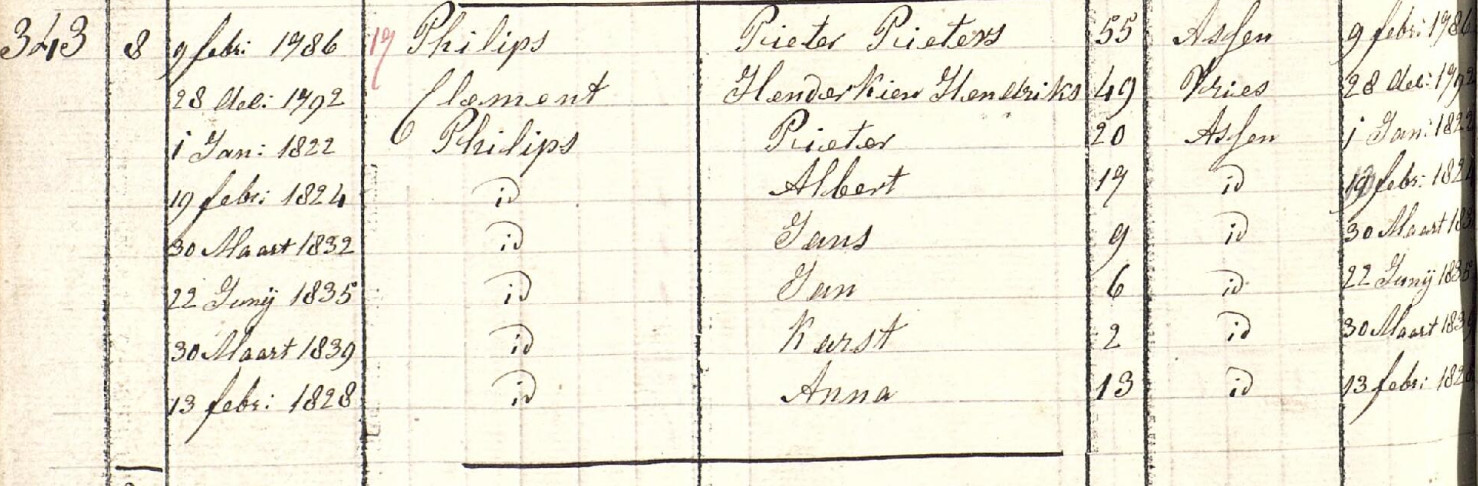 343 8 9 febr: 1786 17 Philips Pieter Pieters 55 Assen 9 febr: 1786
28 dec: 1792 Clement Henderkien Hendriks 49 Vries 28 dec: 179
1 Jan: 1822 Philips Pieter 20 Assen 1 Jan: 182
19 febr: 1824 id Albert 17 id 19 febr: 182
30 Maart 1832 id Jans 9 id 30 Maart 18
22 Junij 1835 id Jan 6 id 22 Junij 183
30 Maart 1839 id Karst 2 id 30 Maart 183
13 febr: 1828 id Anna 13 id 13 febr: 182